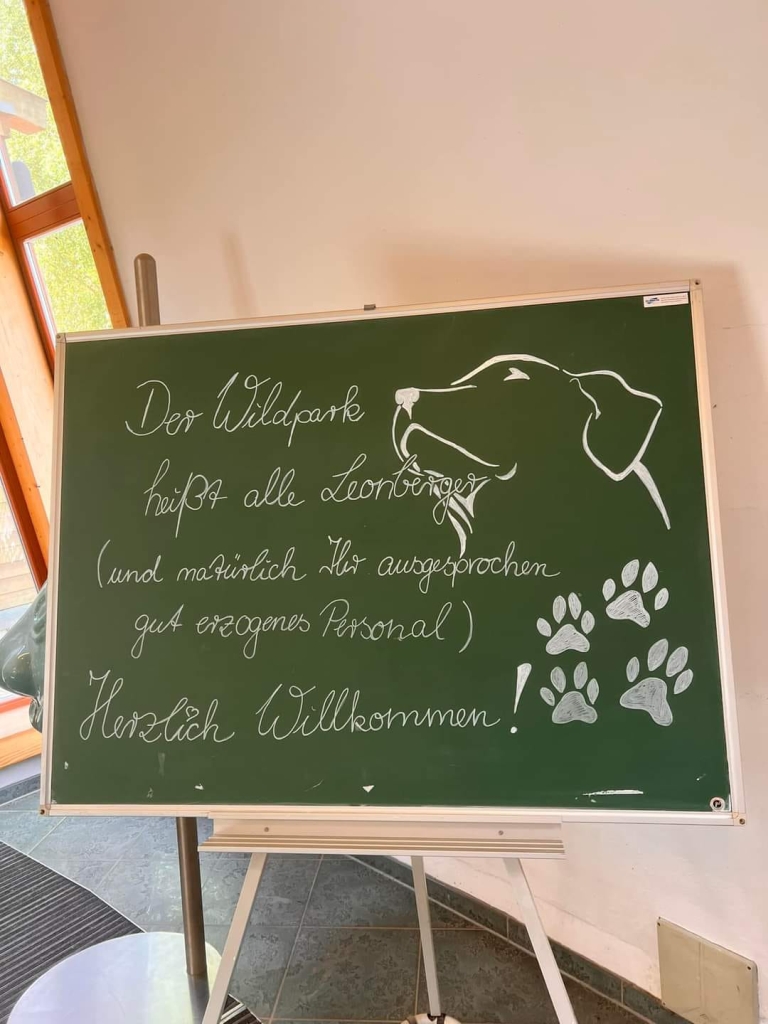 Der Wildpark
heißt alle Leonberger
(und natürlich Ihr ausgesprochen
gut erzogenes Personal)
Herzlich Willkommen!